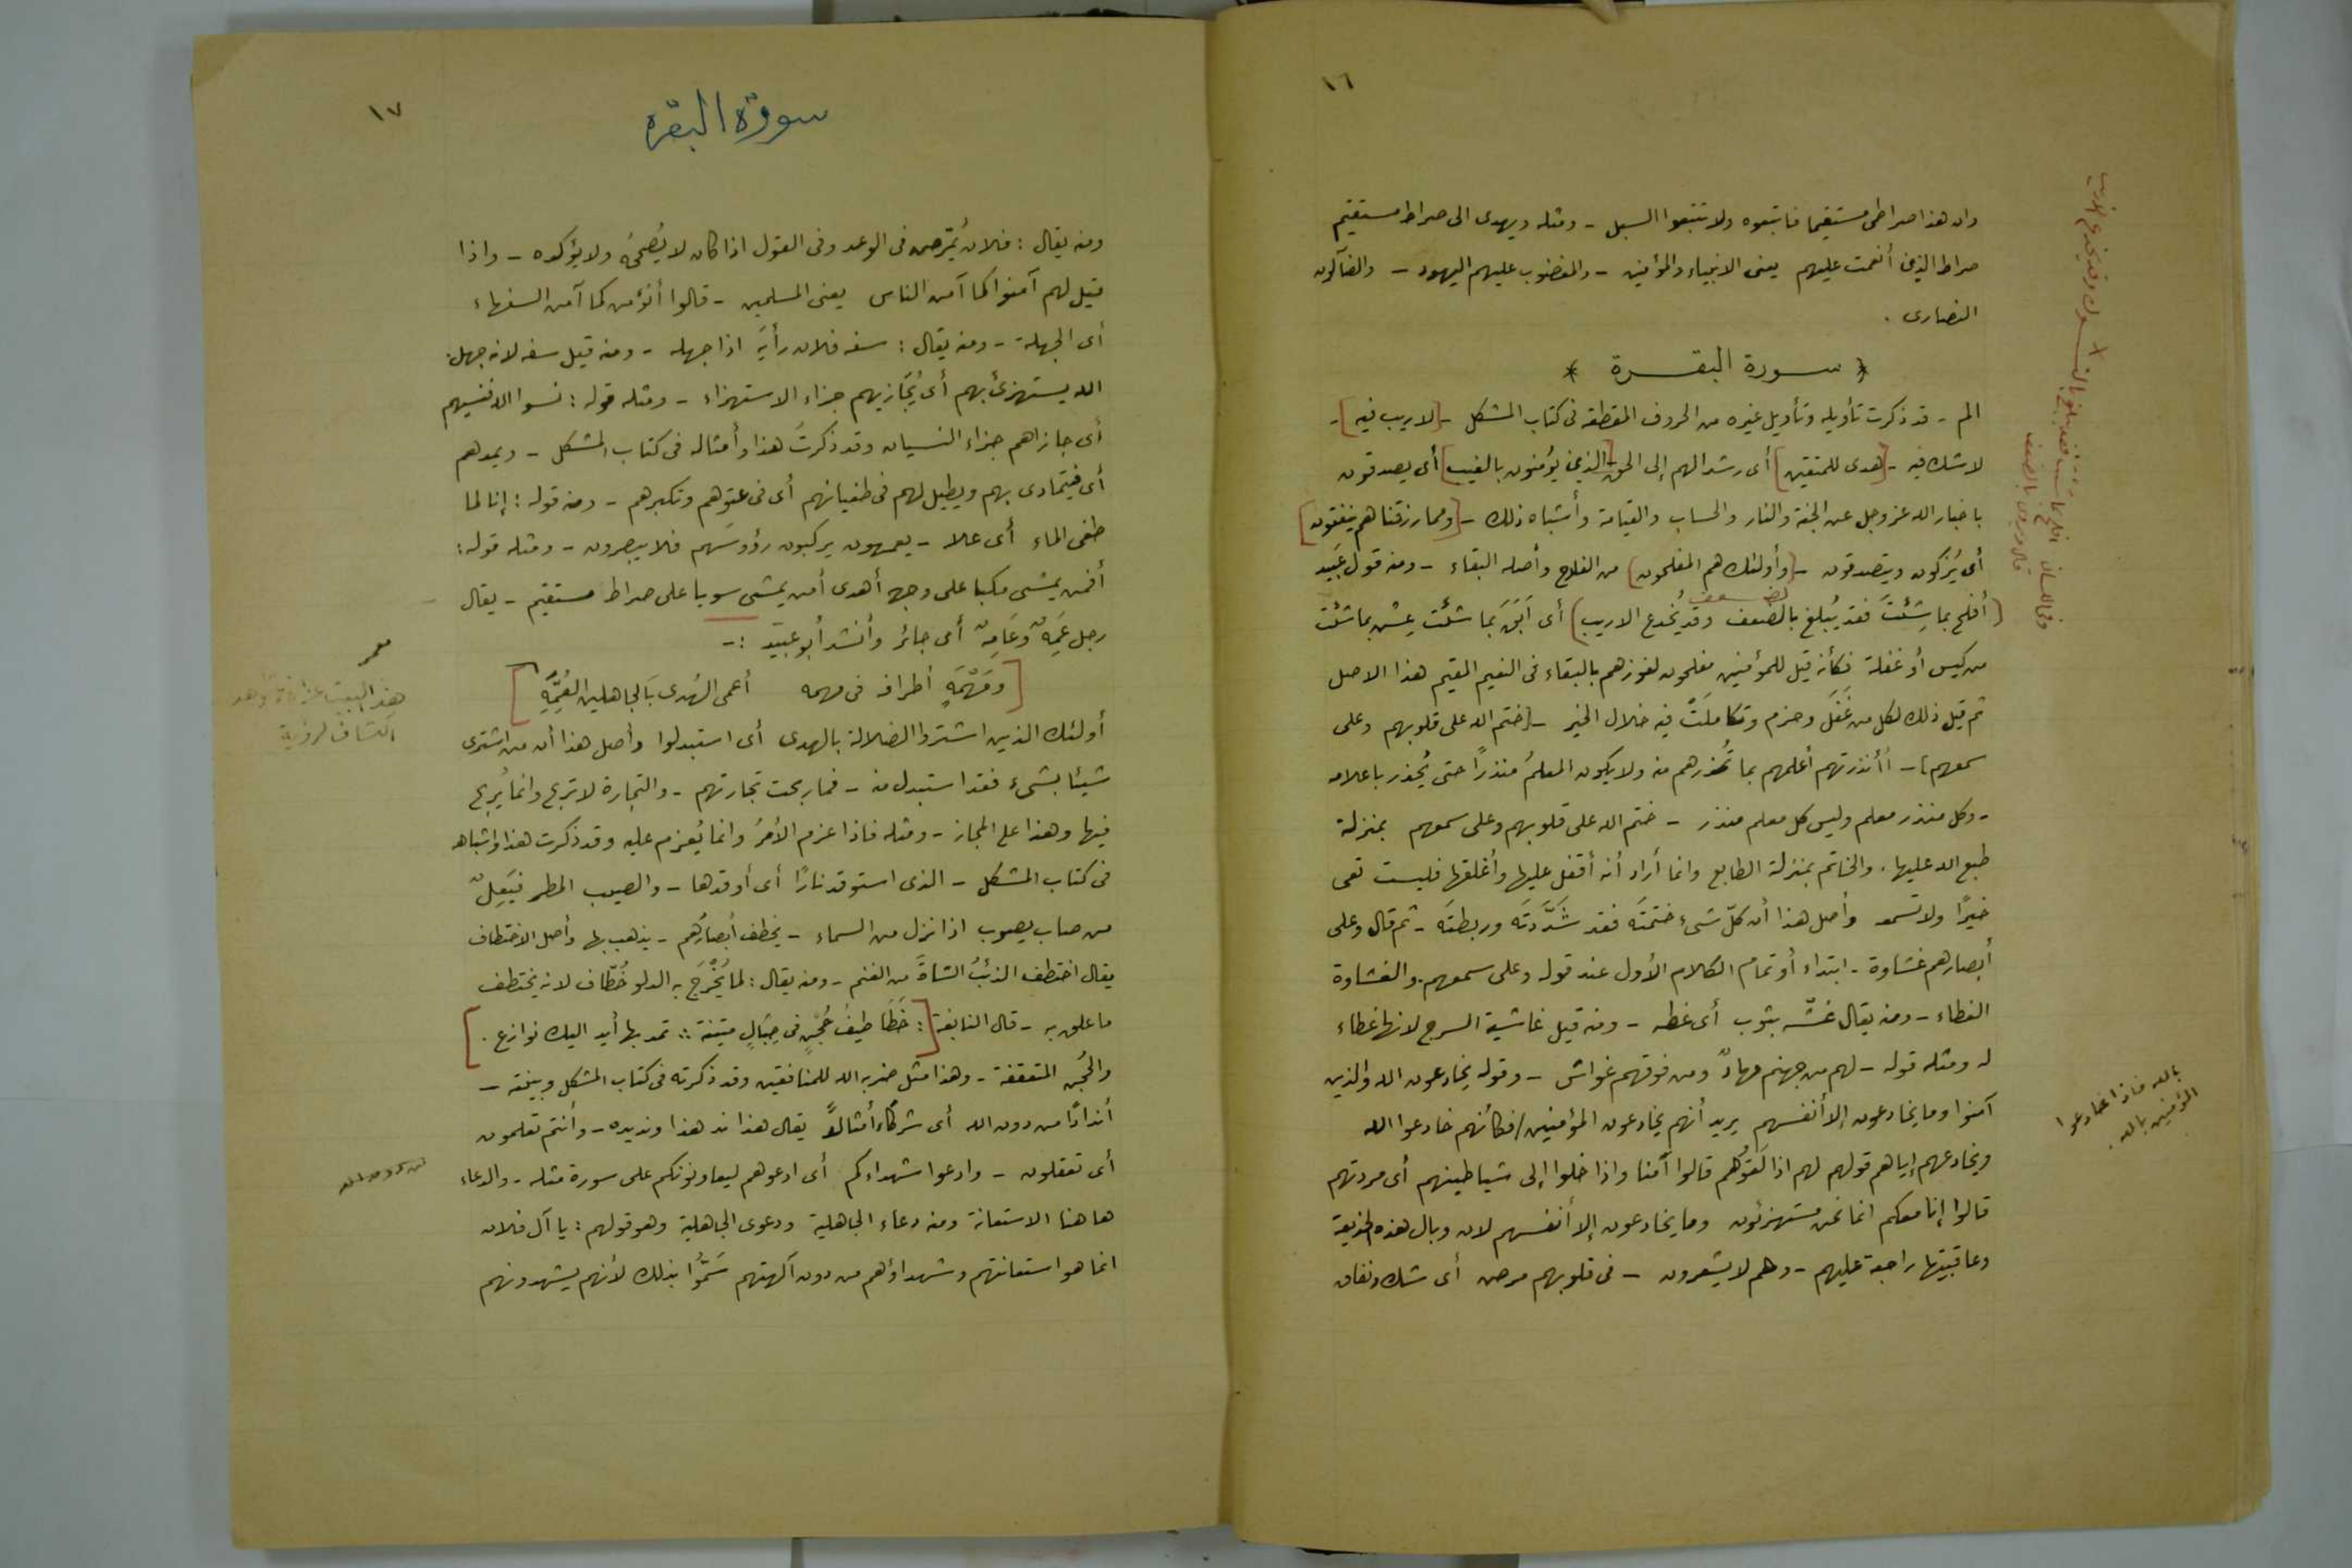 ١٦
وان هذا صراطى مستقيما فاتبعوه ولا تتبعوا السبل - ومثله ويهدى الى صراط مستقيم
صراط الذين أنعمت عليهم يعنى الانبياء والمؤمنين - والمغضوب عليهم اليهود - والضآلون
النصارى .
* سورة البقرة *
الم - قد ذكرت تأويله وتأويل غيره من الحروف المقطعة فى كتاب المشكل - [لا ريب فيه] -
لا شك فيه - [هدى للمتقين] أى رشدا لهم إلى الحق - [الذين يؤمنون بالغيب] أى يصدقون
باخبار الله عز وجل عن الجنة والنار والحساب والقيامة وأشباه ذلك - [ومما رزقناهم ينفقون]
أى يُزكون ويتصدقون - [وأولئك هم المفلحون] من الفلاح وأصله البقاء - ومنه قول عَبَيد
(أفلح بما شِئتَ فقد يُبلغ بالضعف وقد يُخدع الاريب) أى ابَقَ بما شئت عِش بما شئت
من كيس أو غفلة فكأنه قيل للمؤمنين مفلحون لفوزهم بالبقاء فى النعيم المقيم هذا الاصل
ثم قيل ذلك لكل من عَقَلَ وحزم وتكاملَتْ فيه خلال الخير - [ختم الله على قلوبهم وعلى
سمعهم] - أأنذرتهم أعلمهم بما تُحذرهم منه ولا يكون المعلمُ منذرًا حتى يُحذر باعلامه
- وكل منذر معلم وليس كل معلم منذر - ختم الله على قلوبهم وعلى سمعهم بمنزلة
طبع الله عليها . والخاتم بمنزلة الطابع وانما أراد أنه أقفل عليها وأغلقها فليست تعى
خيرًا ولا تسمعه وأصل هذا أن كلّ شىء ختمتَه فقد شَدَّدتَه وربطتَه - ثم قال وعلى
أبصارهم غشاوة - ابتداء أو تمام الكلام الأول عند قوله وعلى سمعهم . والغشاوة
الغطاء - ومنه يقال غشّه بثوب أى غطه - ومنه قيل غاشية السرج لانها غطاء
له ومثله قوله - لهم من جهنم مهادٌ ومن فوقهم غواش - وقوله يخادعون الله والذين
آمنوا وما يخادعون إلا أنفسهم يريد أنهم يخادعون المؤمنين / فكأنهم خادعوا الله
بالله فاذا خادعوا
المؤمنين بالله .
ويخادعهم إياهم قولهم لهم اذا لَقَوُهم قالوا آمنا واذا خلوا إلى شياطينهم أى مردتهم
قالوا إنا معكم انما نحن مستهزئون وما يخادعون إلا أنفسهم لان وبال هذه الخديعة
وعاقبتها راجعة عليهم - وهم لا يشعرون - فى قلوبهم مرض أى شك ونفاق
١٧
سورة البقرة
ومنه يقال : فلان يُمَرّض فى الوعد وفى القول اذا كان لا يُصحُهُ ولا يؤكده - واذا
قيل لهم آمنوا كما آمن الناس يعنى المسلمين - قالوا أنؤمن كما آمن السفهاء
أى الجهلة - ومنه يقال : سفه فلان رأيَهُ اذا جهله - ومنه قيل سفه لانه جهل .
الله يستهزئ بهم أى يُجَازيهم جزاء الاستهزاء - ومثله قوله : نسوا الله فنسيهم
أى جازاهم جزاء النسيان وقد ذكرتُ هذا وأمثاله فى كتاب المشكل - ويمدهم
أى فيتمادى بهم ويطيل لهم فى طغيانهم أى فى عتوّهم وتكبرهم - ومنه قوله : إنا لما
طغى الماء أى علا - يعمهون يركبون رؤوسَهم فلا يبصرون - ومثله قوله :
أفمن يمشى مكبا على وجهه أهدى أمن يمشى سويا على صراط مستقيم - يقال
رجل عَمِهٌ وعَامِهٌ أى جائر وأنشد أبو عبيد :-
[ومَهْمَهٍ أطرافه فى مهمه أعمى الهُدى بَالجاهلين العُمَّهِ]
أولئك الذين اشتروا الضلالة بالهدى أى استبدلوا وأصل هذا أن من اشترى
شيئا بشىء فقد استبدل منه - فما ربحت تجارتهم - والتجارة لا تربح وانما يُربح
فيها وهذا على المجاز - ومثله فاذا عزم الأمرُ وانما يُعزم عليه وقد ذكرت هذا واشباهه
فى كتاب المشكل - الذى استوقد نارًا أى أوقدها - والصيب المطر فيَعِلٌ
من صاب يصوب اذا نزل من السماء - يخطف أبصارُهم - يذهب بها وأصل الاختطاف
يقال اختطف الذئبُ الشاةَ من الغنم - ومنه يقال : لما يُخْرَجُ به الدلو خُطّاف لانه يختطف
ما علق به - قال النابغة [: خَطَا طيفُ حُجْنٍ فى حِبَالٍ متينة :: تمد بها أيد اليك نوازع .]
والحُجن المتعقفة - وهذا مثل ضربه الله للمنافقين وقد ذكرته فى كتاب المشكل وبينته -
أندادًا من دون الله أى شركاء أمثالًا يقال هذا ند هذا ونديده - وأنتم تعلمون
أى تعقلون - وادعوا شهداءكم أى ادعوهم ليعاونونكم على سورة مثله - والدعاء
هاهنا الاستغاثة ومنه دعاء الجاهلية ودعوى الجاهلية وهو قولهم : يا آل فلان
انما هو استغاثتهم وشهداؤهم من دون آلهتهم سَمُّوا بذلك لأنهم يشهدونهم